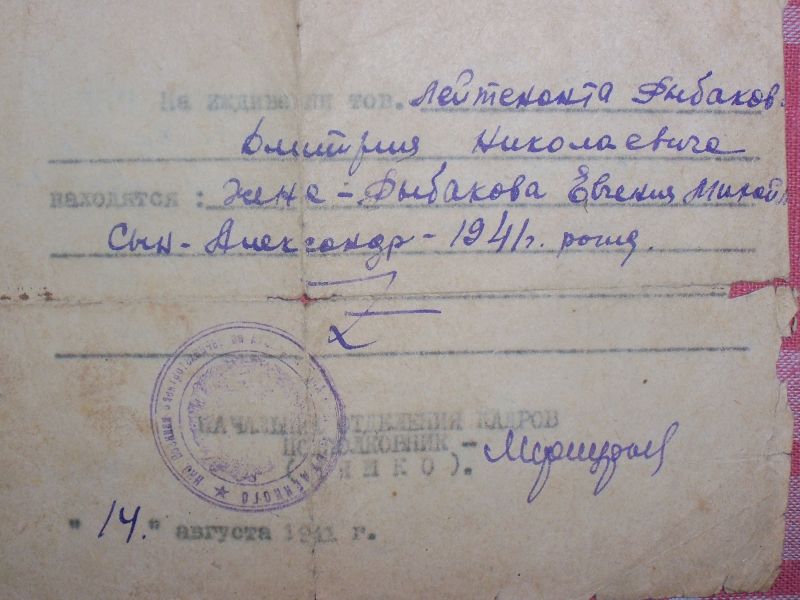 На иждивении тов. Лейтенанта Рыбаков
Дмитрия Николаевича
находятся: Жена - Рыбакова Евгения Михай
Сын - Александр - 1941г. рожд.
НАЧАЛЬНИК ОТДЕЛЕНИЯ КАДРОВ
ПОДПОЛКОВНИК -
"14." августа 1941 г.